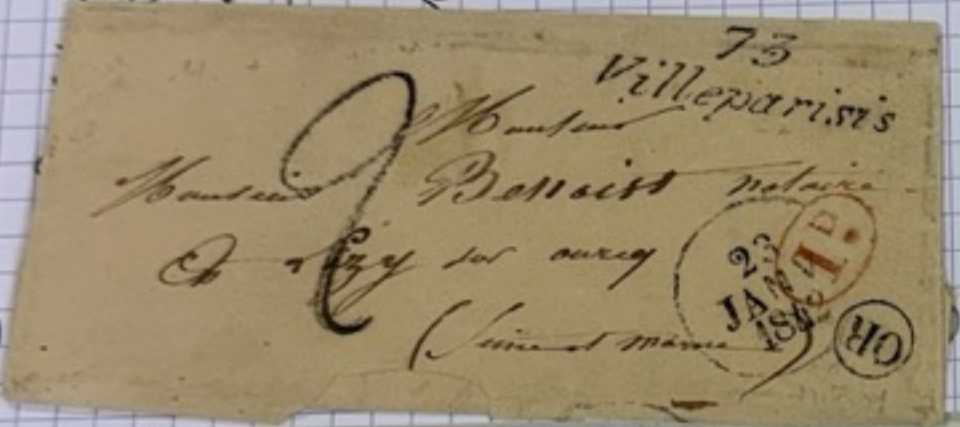 73
Villeparisis
Monsieur
Monsieur Benoist notaire
à Lizy sur ourcq
(Seine et marne)
2
23
JAN
1D
OR